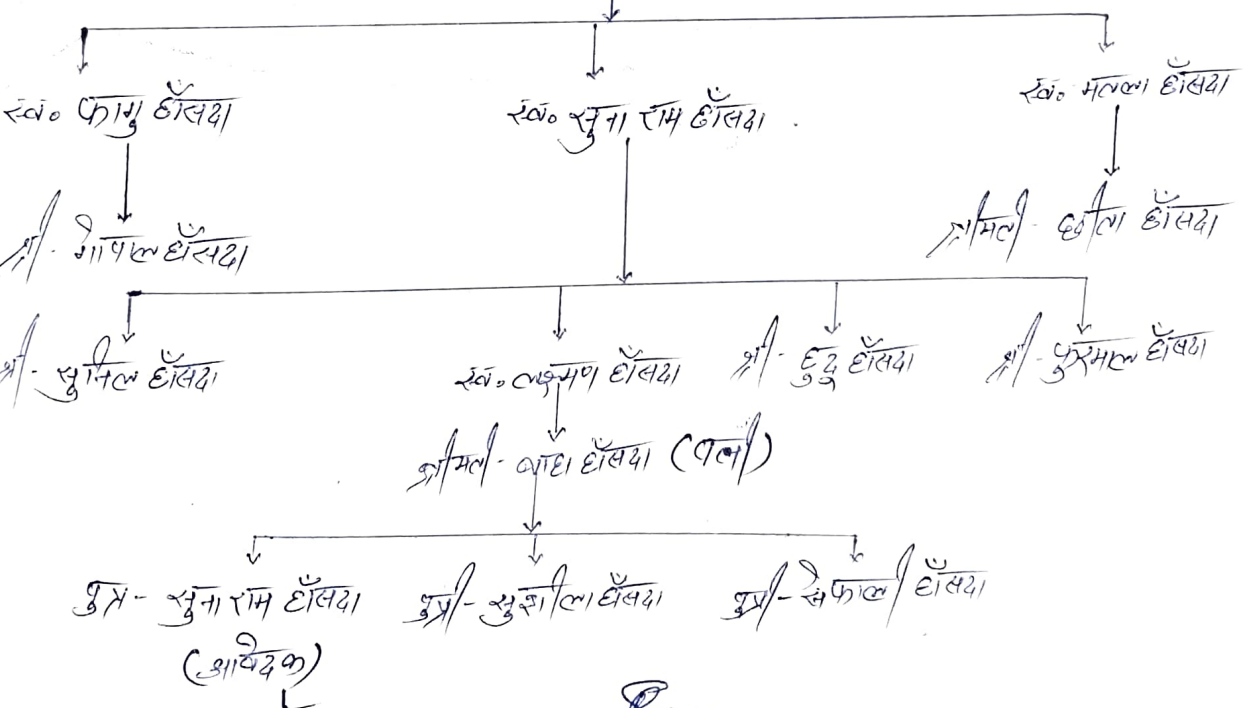 स्व० फागु हाँसदा स्व० सुना राम हाँसदा स्व० मतला हाँसदा
श्री - गोपाल हाँसदा श्रीमती - छीता हाँसदा
श्री - सुनिल हाँसदा स्व० लक्ष्मण हाँसदा श्री - दुदू हाँसदा श्री - हाँसदा
श्रीमती - हाँसदा (पत्नी)
पुत्र - सुना राम हाँसदा पुत्री - सुशीला हाँसदा पुत्री - सेफाली हाँसदा
(आवेदक)